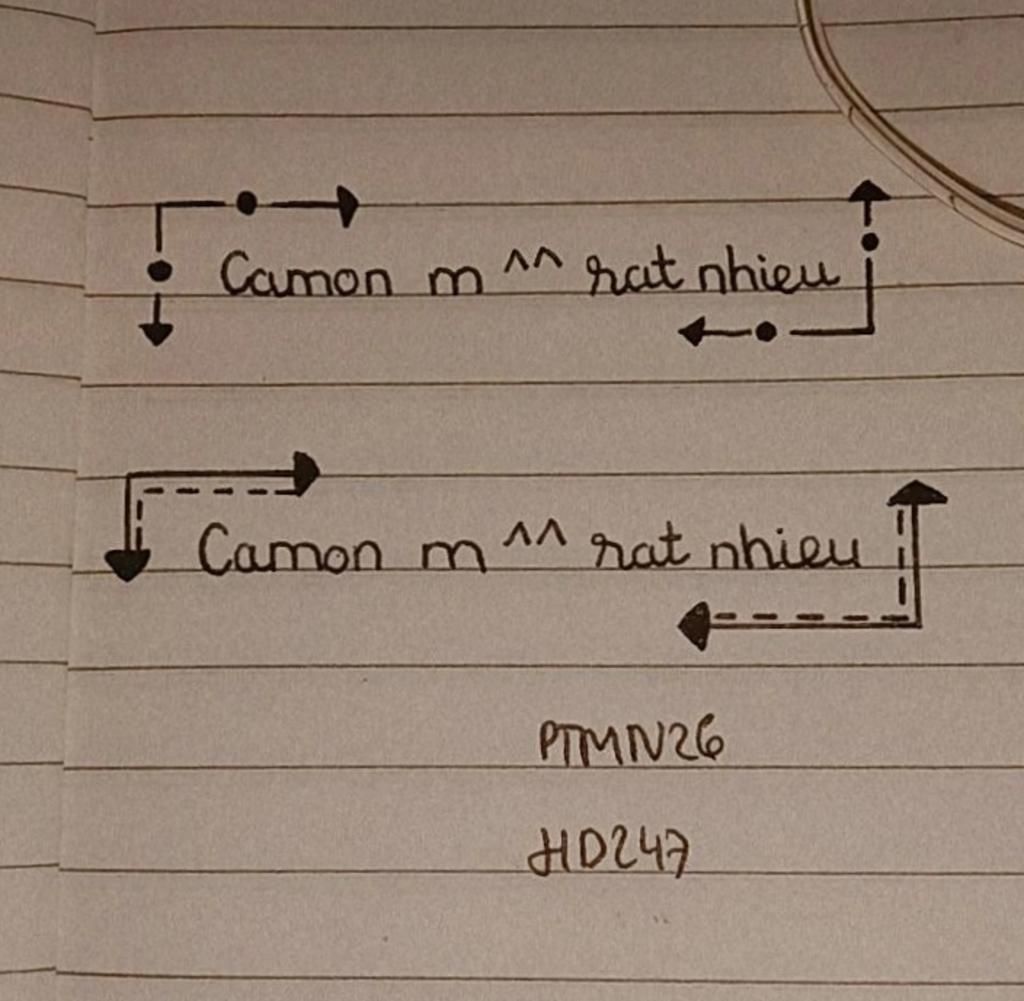 Camon m ^^ rat nhieu
Camon m ^^ rat nhieu
PTMN26
HD247